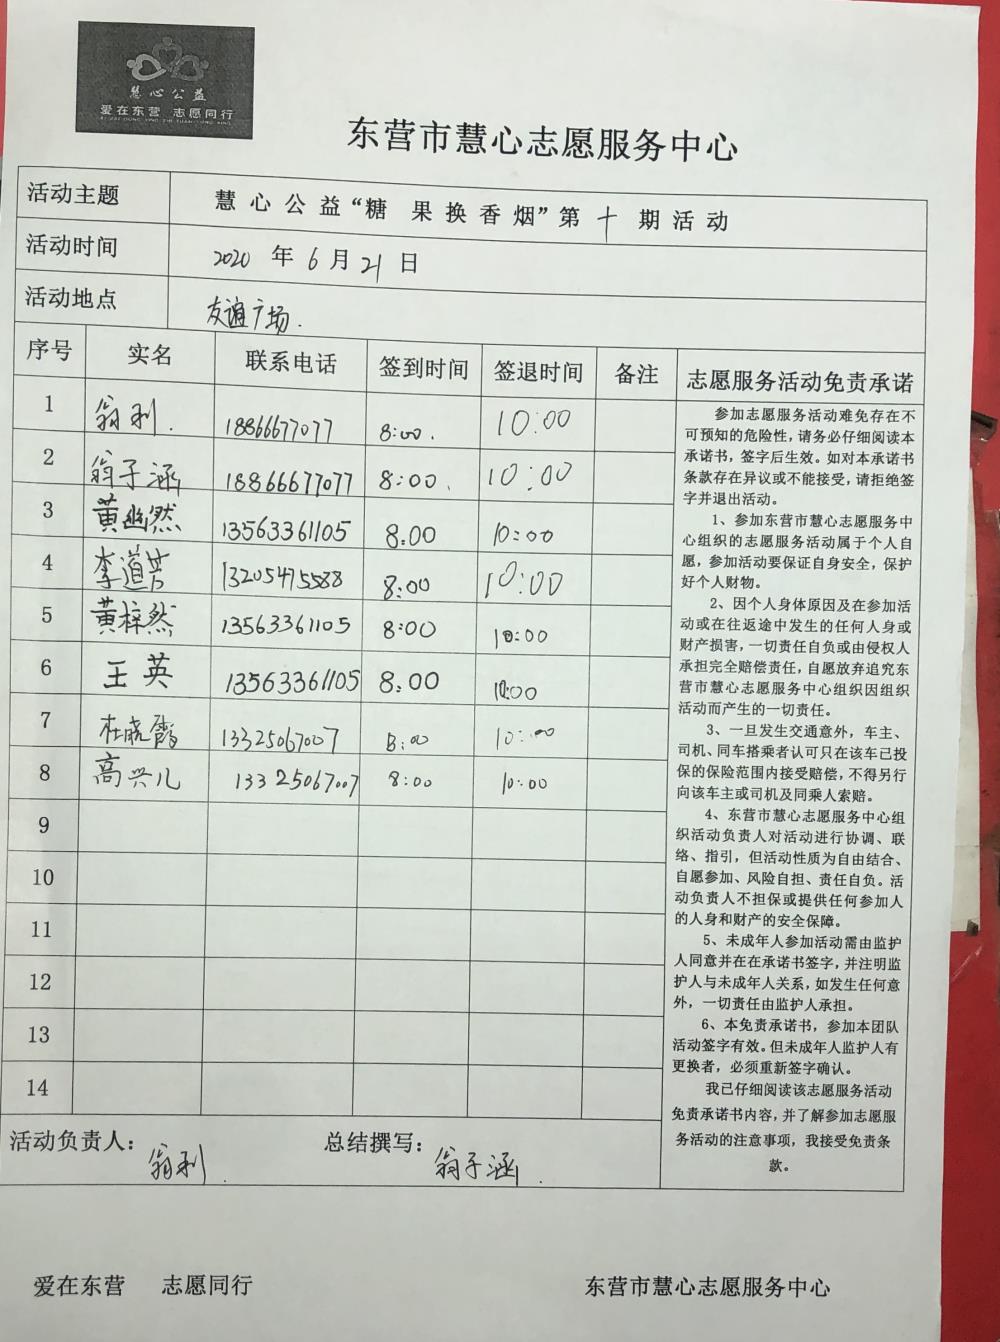 慧心公益
爱在东营 志愿同行
AI ZAI DONG YING ZHI YUAN TONG XING
东营市慧心志愿服务中心
活动主题 慧心公益“糖 果换香烟”第十期活动
活动时间 2020年6月21日
活动地点 友谊广场.
序号 实名 联系电话 签到时间 签退时间 备注
1 翁利. 18866677077 8:00. 10:00
2 翁子涵 18866677077 8:00. 10:00
3 黄幽然 13563361105 8.00 10:00
4 李道芳 13205475588 8:00 10:00
5 黄梓然 13563361105 8:00 10:00
6 王英 13563361105 8.00 10:00
7 杜晓霞 13325067007 8:00 10:00
8 高兴儿 13325067007 8:00 10:00
9
10
11
12
13
14
志愿服务活动免责承诺
参加志愿服务活动难免存在不
可预知的危险性,请务必仔细阅读本
承诺书,签字后生效。如对本承诺书
条款存在异议或不能接受,请拒绝签
字并退出活动。
1、参加东营市慧心志愿服务中
心组织的志愿服务活动属于个人自
愿,参加活动要保证自身安全,保护
好个人财物。
2、因个人身体原因及在参加活
动或在往返途中发生的任何人身或
财产损害,一切责任自负或由侵权人
承担完全赔偿责任,自愿放弃追究东
营市慧心志愿服务中心组织因组织
活动而产生的一切责任。
3、一旦发生交通意外,车主、
司机、同车搭乘者认可只在该车已投
保的保险范围内接受赔偿,不得另行
向该车主或司机及同乘人索赔。
4、东营市慧心志愿服务中心组
织活动负责人对活动进行协调、联
络、指引,但活动性质为自由结合、
自愿参加、风险自担、责任自负。活
动负责人不担保或提供任何参加人
的人身和财产的安全保障。
5、未成年人参加活动需由监护
人同意并在在承诺书签字,并注明监
护人与未成年人关系,如发生任何意
外,一切责任由监护人承担。
6、本免责承诺书,参加本团队
活动签字有效。但未成年人监护人有
更换者,必须重新签字确认。
我已仔细阅读该志愿服务活动
免责承诺书内容,并了解参加志愿服
务活动的注意事项,我接受免责条
款。
活动负责人: 翁利. 总结撰写: 翁子涵.
爱在东营 志愿同行 东营市慧心志愿服务中心